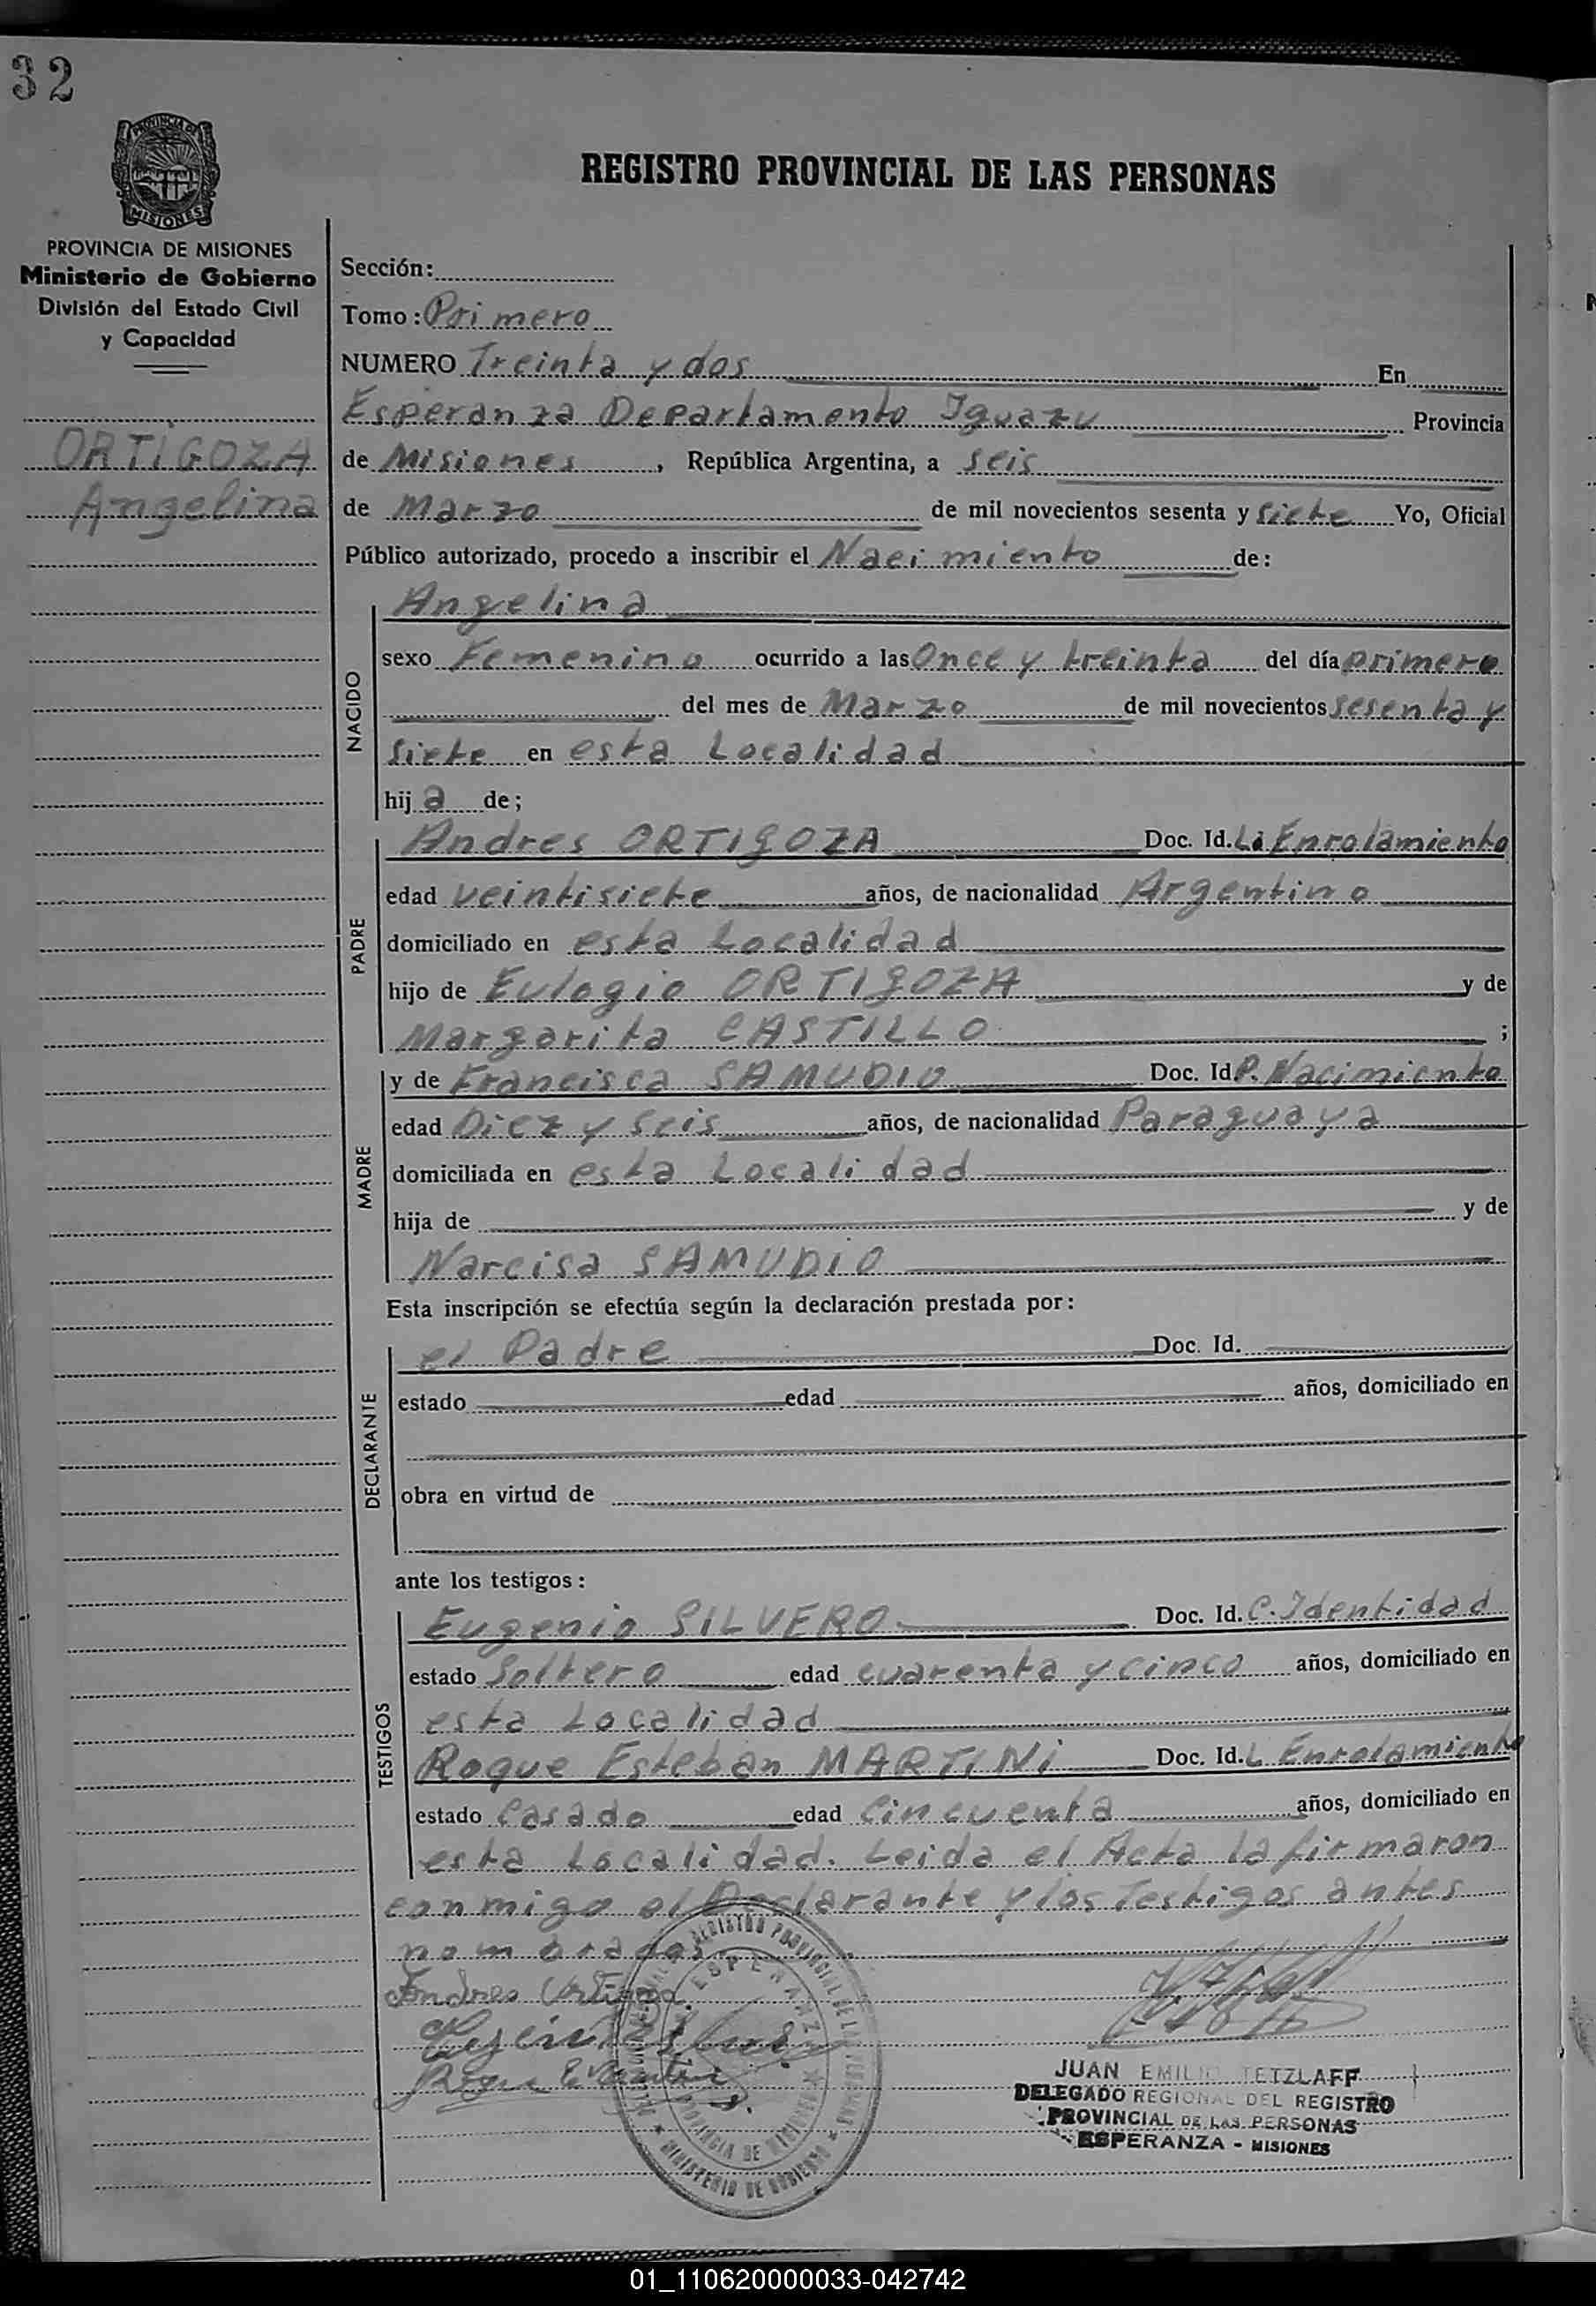 32
PROVINCIA DE
MISIONES
PROVINCIA DE MISIONES
Ministerio de Gobierno
División del Estado Civil
y Capacidad
ORTIGOZA
Angelina
REGISTRO PROVINCIAL DE LAS PERSONAS
Sección:
Tomo: Primero
NUMERO Treinta y dos En
Esperanza Departamento Iguazu Provincia
de Misiones, República Argentina, a seis
de Marzo de mil novecientos sesenta y siete Yo, Oficial
Público autorizado, procedo a inscribir el Nacimiento de:
NACIDO
Angelina
sexo Femenino ocurrido a las Once y treinta del día primero
del mes de Marzo de mil novecientos sesenta y
siete en esta Localidad
hija de;
PADRE
Andres ORTIGOZA Doc. Id. Li Enrolamiento
edad veintisiete años, de nacionalidad Argentino
domiciliado en esta Localidad
hijo de Eulogio ORTIGOZA y de
Margarita CASTILLO ;
MADRE
y de Francisca SAMUDIO Doc. Id P. Nacimiento
edad Diez y seis años, de nacionalidad Paraguaya
domiciliada en esta Localidad
hija de y de
Narcisa SAMUDIO
Esta inscripción se efectúa según la declaración prestada por:
DECLARANTE
el Padre Doc. Id.
estado edad años, domiciliado en
obra en virtud de
ante los testigos:
TESTIGOS
Eugenio SILVERO Doc. Id. C. Identidad
estado Soltero edad cuarenta y cinco años, domiciliado en
esta Localidad
Roque Esteban MARTINI Doc. Id. L Enrolamiento
estado Casado edad Cincuenta años, domiciliado en
esta Localidad. Leida el Acta la firmaron
conmigo el Declarante y los Testigos antes
nombrados
Andres Ortigoza.
REGISTRO PROVINCIAL DE LAS PERSONAS
ESPERANZA
PROVINCIA DE MISIONES
MINISTERIO DE GOBIERNO
JUAN EMILIO TETZLAFF
DELEGADO REGIONAL DEL REGISTRO
PROVINCIAL DE LAS PERSONAS
ESPERANZA - MISIONES
01_110620000033-042742